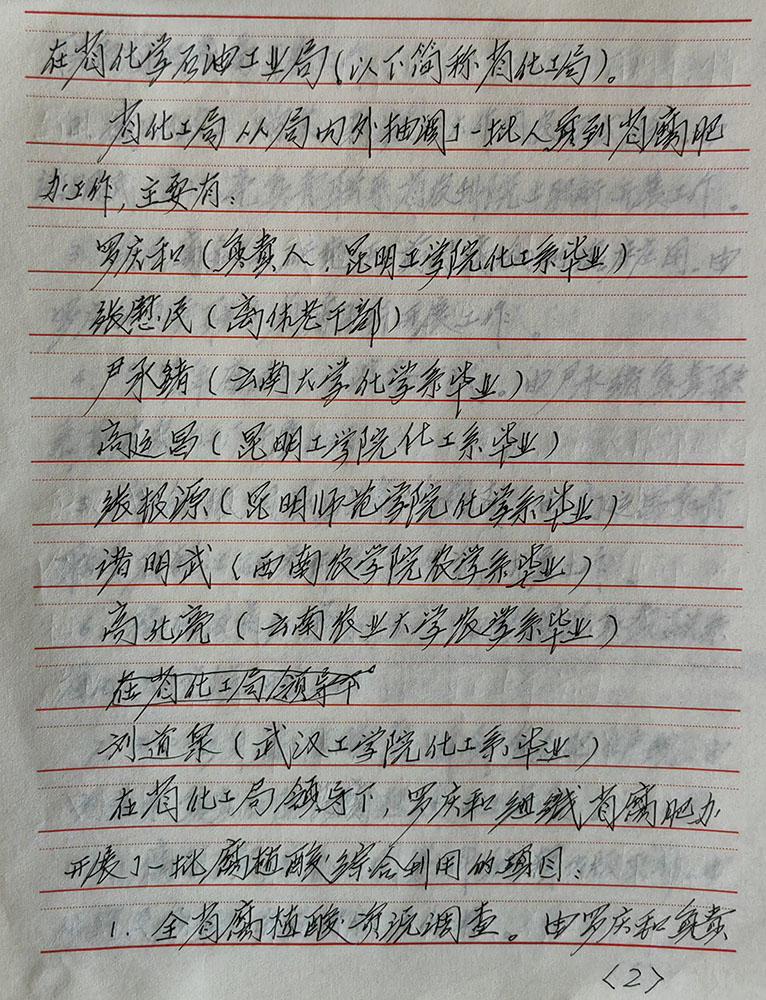 在省化学石油工业局(以下简称省化工局)。
省化工局从局内外抽调了一批人员到省腐肥
办工作,主要有:
罗庆和(负责人,昆明工学院化工系毕业)
张慰民(离休老干部)
尹承绪(云南大学化学系毕业)
高运昌(昆明工学院化工系毕业)
张极源(昆明师范学院化学系毕业)
诸明武(西南农学院农学系毕业)
高兆亮(云南农业大学农学系毕业)
在省化工局领导下
刘道泉(武汉工学院化工系毕业)
在省化工局领导下,罗庆和组织省腐肥办
开展了一批腐植酸综合利用的项目:
1. 全省腐植酸资源调查。由罗庆和负责
<2>